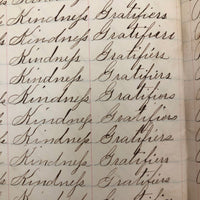 Kindneſs Gratifiers
Kindneſs Gratifiers
Kindneſs Gratifiers
Kindneſs Gratifiers
Kindneſs Gratifiers
Kindneſs Gratifiers
Kindneſs Gratifiers
Kindneſs Gratifiers
Kindneſs Gratifiers